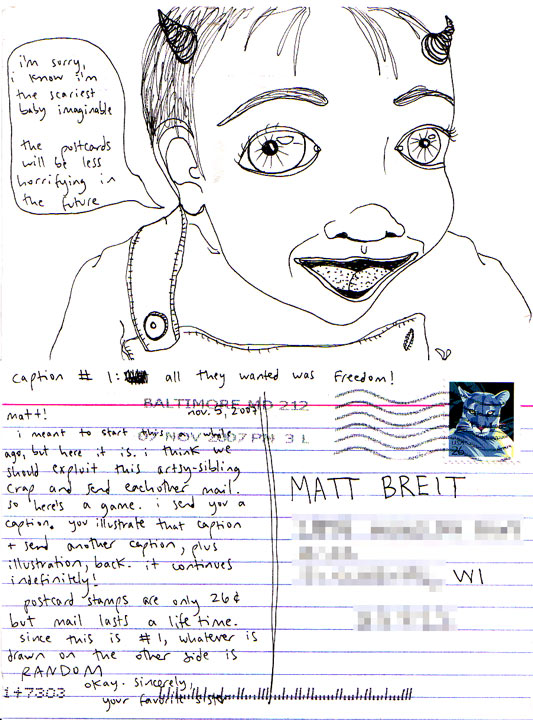 i'm sorry,
i know i'm
the scariest
baby imaginable
the postcards
will be less
horrifying in
the future
caption # 1: all they wanted was Freedom!
BALTIMORE MD 212
07 NOV 2007 PM 3 L
nov. 5, 2007
matt!
i meant to start this a while
ago, but here it is. i think we
should exploit this artsy-sibling
crap and send eachother mail.
so here's a game. i send you a
caption. you illustrate that caption
+ send another caption, plus
illustration, back. it continues
indefinitely!
postcard stamps are only 26¢
but mail lasts a lifetime.
since this is #1, whatever is
drawn on the other side is
RANDOM
okay. sincerely,
your favorite sister
147303
26
MATT BREIT
WI